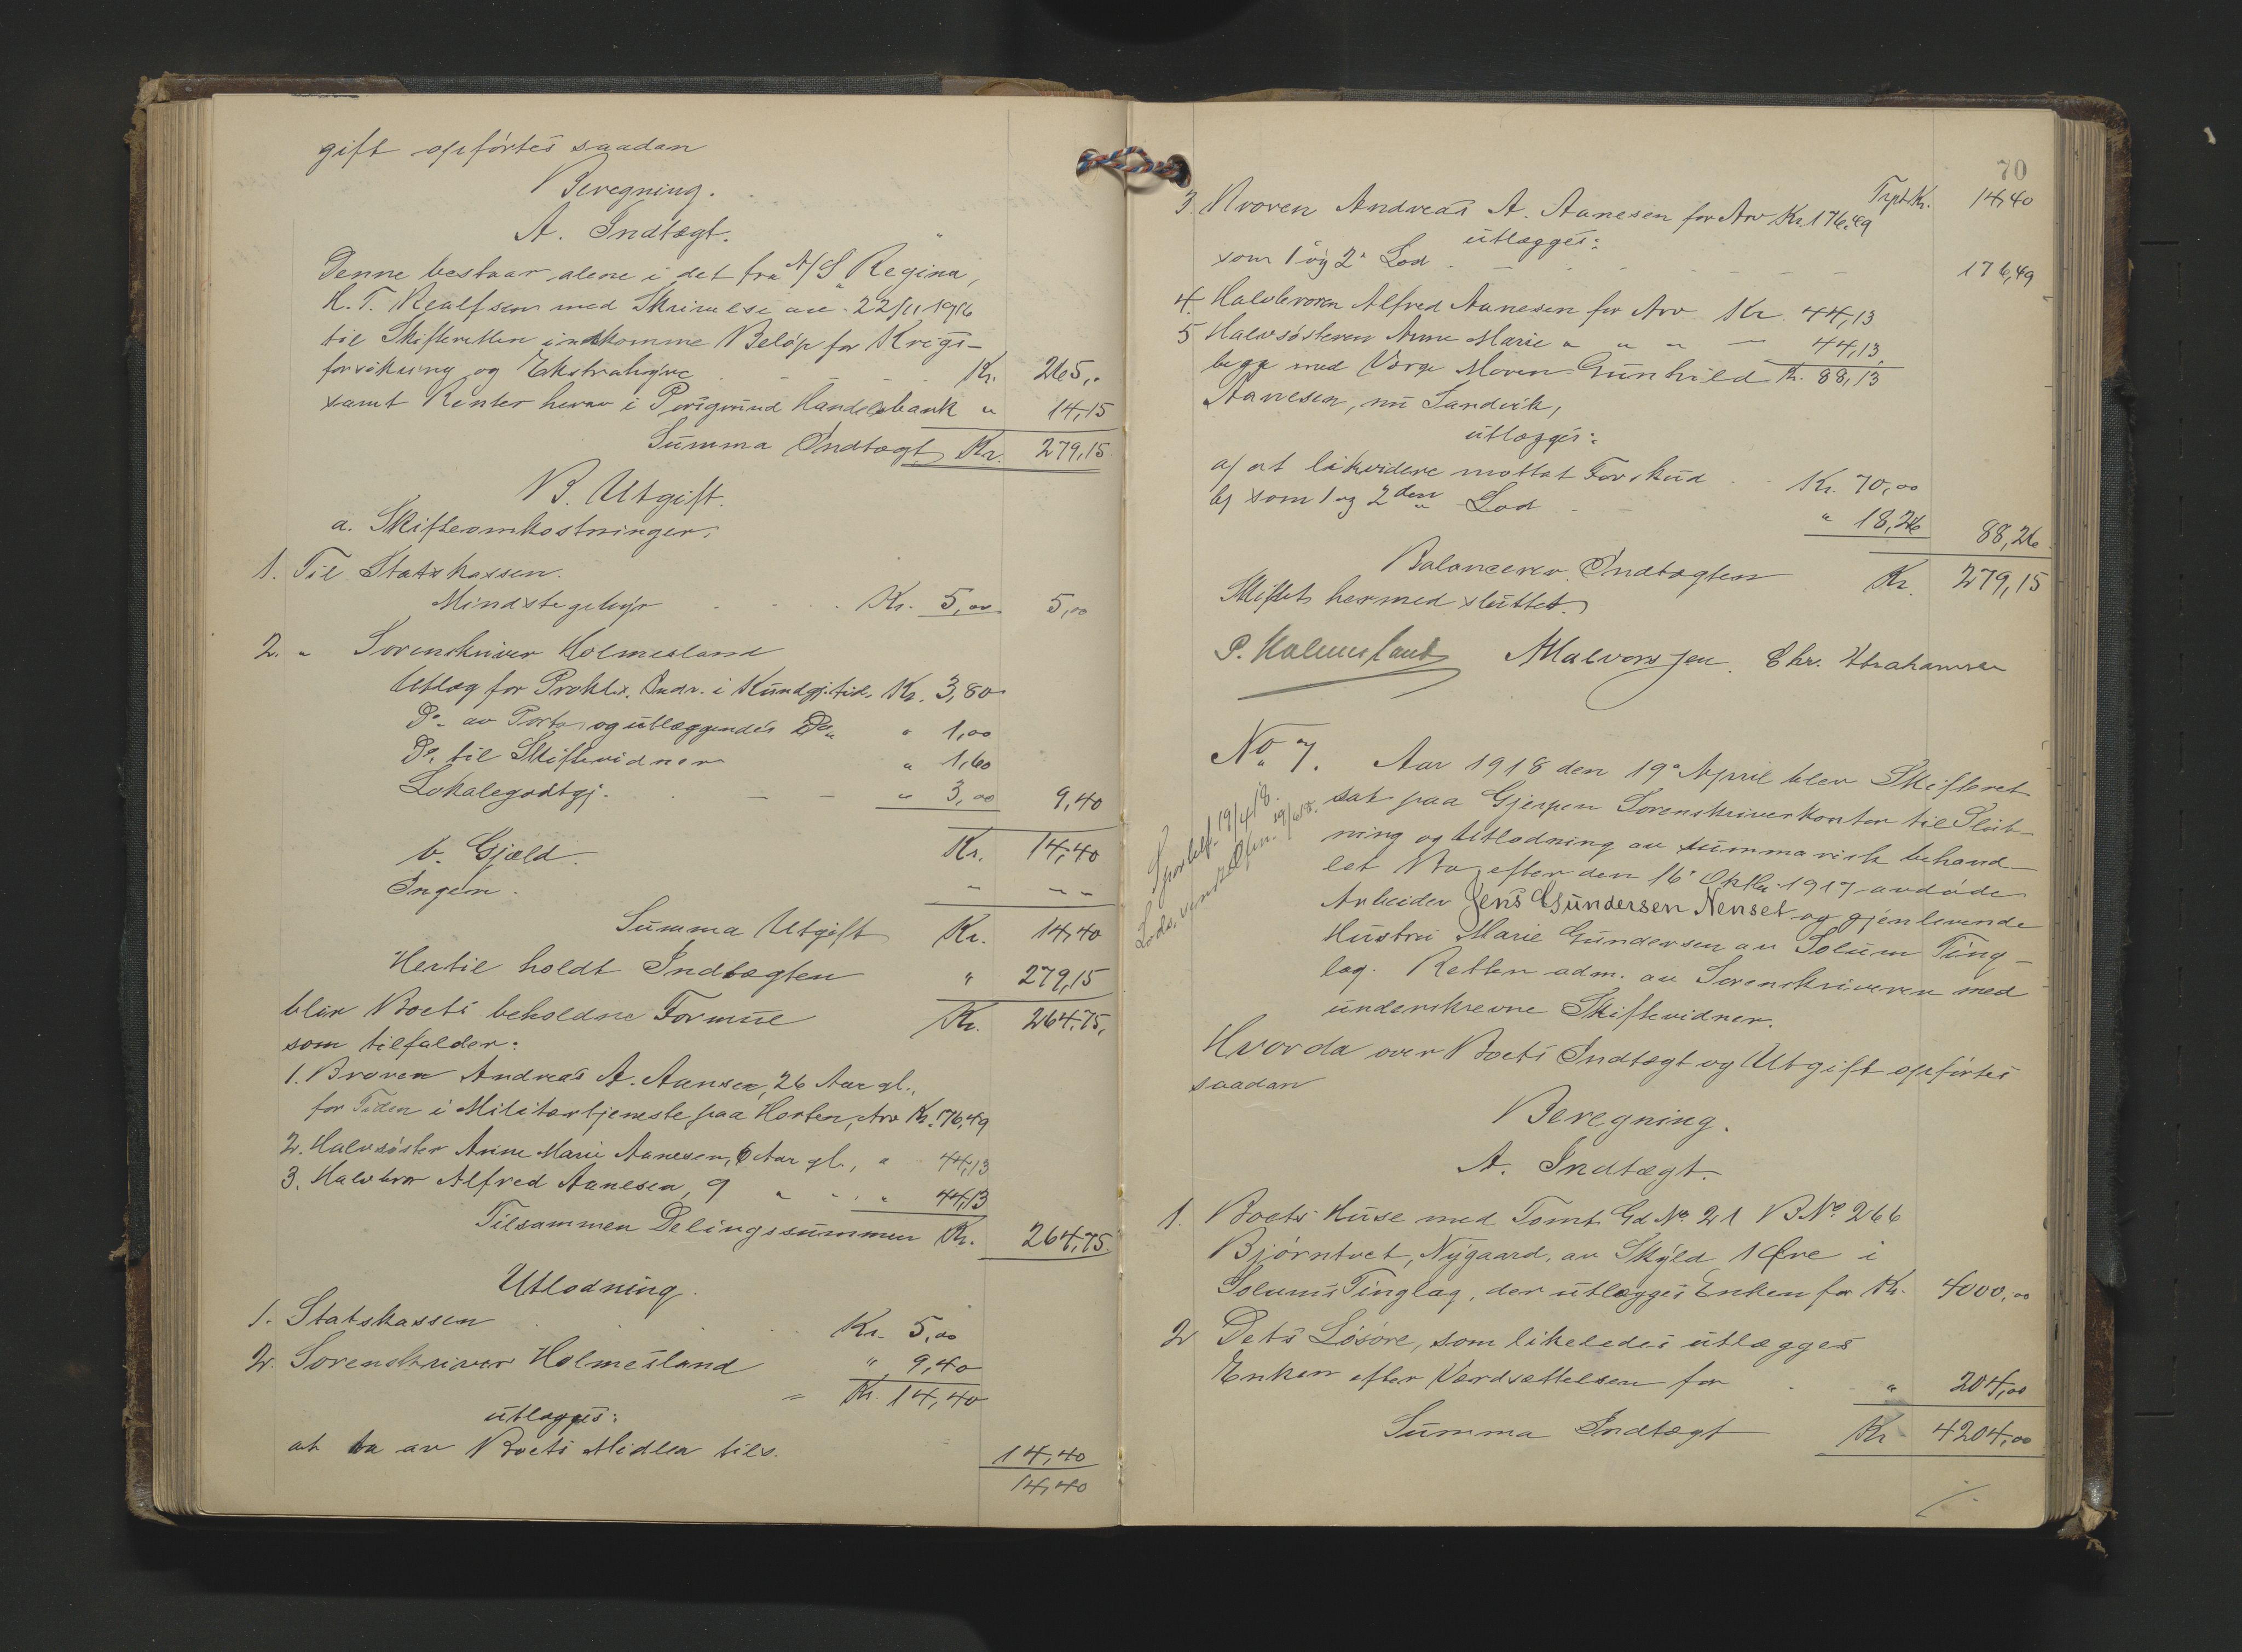 gift opførtes saadan
Beregning.
A. Indtægt.
Denne bestaar alene i det fra A/S "Regina",
H. T. Realfsen med Skrivelse av 22/11 1916
til Skifteretten indkomne Beløp for Krigs-
forsikring og Ekstrahyre Kr. 265,-
samt Renter herav i Porsgrund Handelsbank " 14,15
Summa Indtægt Kr. 279,15
B. Utgift.
a. Skifteomkostninger.
1. Til Statskassen.
Mindstegebyr Kr. 5,00 5,00
2. " Sorenskriver Holmesland
Utlæg for Prokl.s. Indr. i Kundgj.tid. Kr. 3,80
Do. av Porto og utlæggendes Do. " 1,00
Do. til Skiftevidner " 1,60
Lokalegodtgj. " 3,00 9,40
Kr. 14,40
b. Gjæld.
Ingen. " - -
Summa Utgift Kr. 14,40
Hertil holdt Indtægten " 279,15
blir Boets beholdne Formue Kr. 264,75.
som tilfalder:
1. Broren Andreas A. Aanesen, 26 Aar gl.,
for Tiden i Militærtjeneste paa Horten, Arv Kr. 176,49
2. Halvsøster Anne Marie Aanesen, 6 Aar gl., " 44,13
3. Halvbror Alfred Aanesen, 9 " " , " 44,13
Tilsammen Delingssummen Kr. 264,75.
Utlodning.
1. Statskassen Kr. 5,00
2. Sorenskriver Holmesland " 9,40
= Kr. 14,40
utlægges:
at ta av Boets Midler tils. 14,40
14,40
70
Trpt. Kr. 14,40
3. Broren Andreas A. Aanesen for Arv Kr. 176,49
utlægges:
som 1 og 2. Lod 176,49
4. Halvbroren Alfred Aanesen for Arv Kr. 44,13
5 Halvsøsteren Anne Marie " " " — 44,13
begge med Værge Moren Gunhild Kr. 88,13
Aanesen, nu Sandvik,
utlægges:
a) at likvidere mottat Forskud Kr. 70,00
b) som 1 og 2den Lod " 18,26 88,26
Balancerer Indtægten Kr. 279,15
Skiftet hermed sluttet.
P. Holmesland AHalvorsen. Chr. Abrahamsen
No. 7. Aar 1918 den 19. April blev Skifteret
sat paa Gjerpen Sorenskriverkontor til Slut-
ning og Utlodning av summarisk behand-
let Bo efter den 16. Oktbr. 1917 avdøde
Arbeider Jens Gundersen Nenset og gjenlevende
Hustru Marie Gundersen av Solum Ting-
lag. Retten adm. av Sorenskriveren med
underskrevne Skiftevidner.
Sportelf. 19/4 18.
19/4 18.
Hvorda over Boets Indtægt og Utgift opførtes
saadan
Beregning.
A. Indtægt.
1. Boets Huse med Tomt Gd No. 21 B No. 266
Bjørntvet, Nygaard, av Skyld 1 Øre i
Solums Tinglag, der utlægges Enken for Kr. 4000,00
2 Dets Løsøre, som likeledes utlægges
Enken efter Værdsættelsen for " 204,00
Summa Indtægt Kr 4204,00